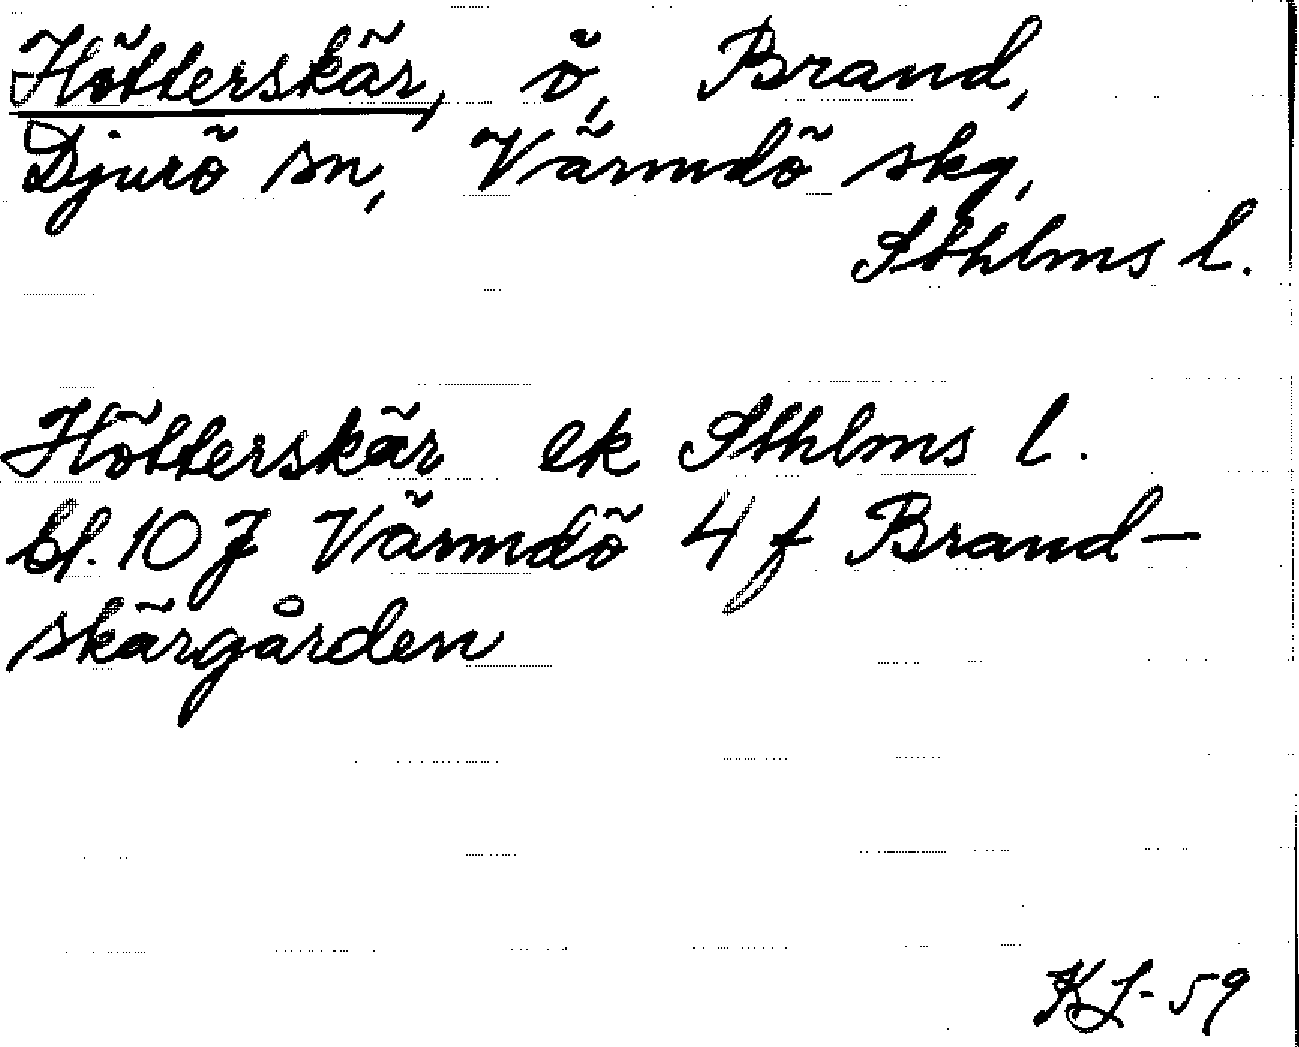 Hötterskär, ö, Brand,
Djurö sn, Värmdö skg,
Sthlms l.
Hötterskär ek Sthlms l.
bl. 10 J Värmdö 4 f Brand-
skärgården
KL-59